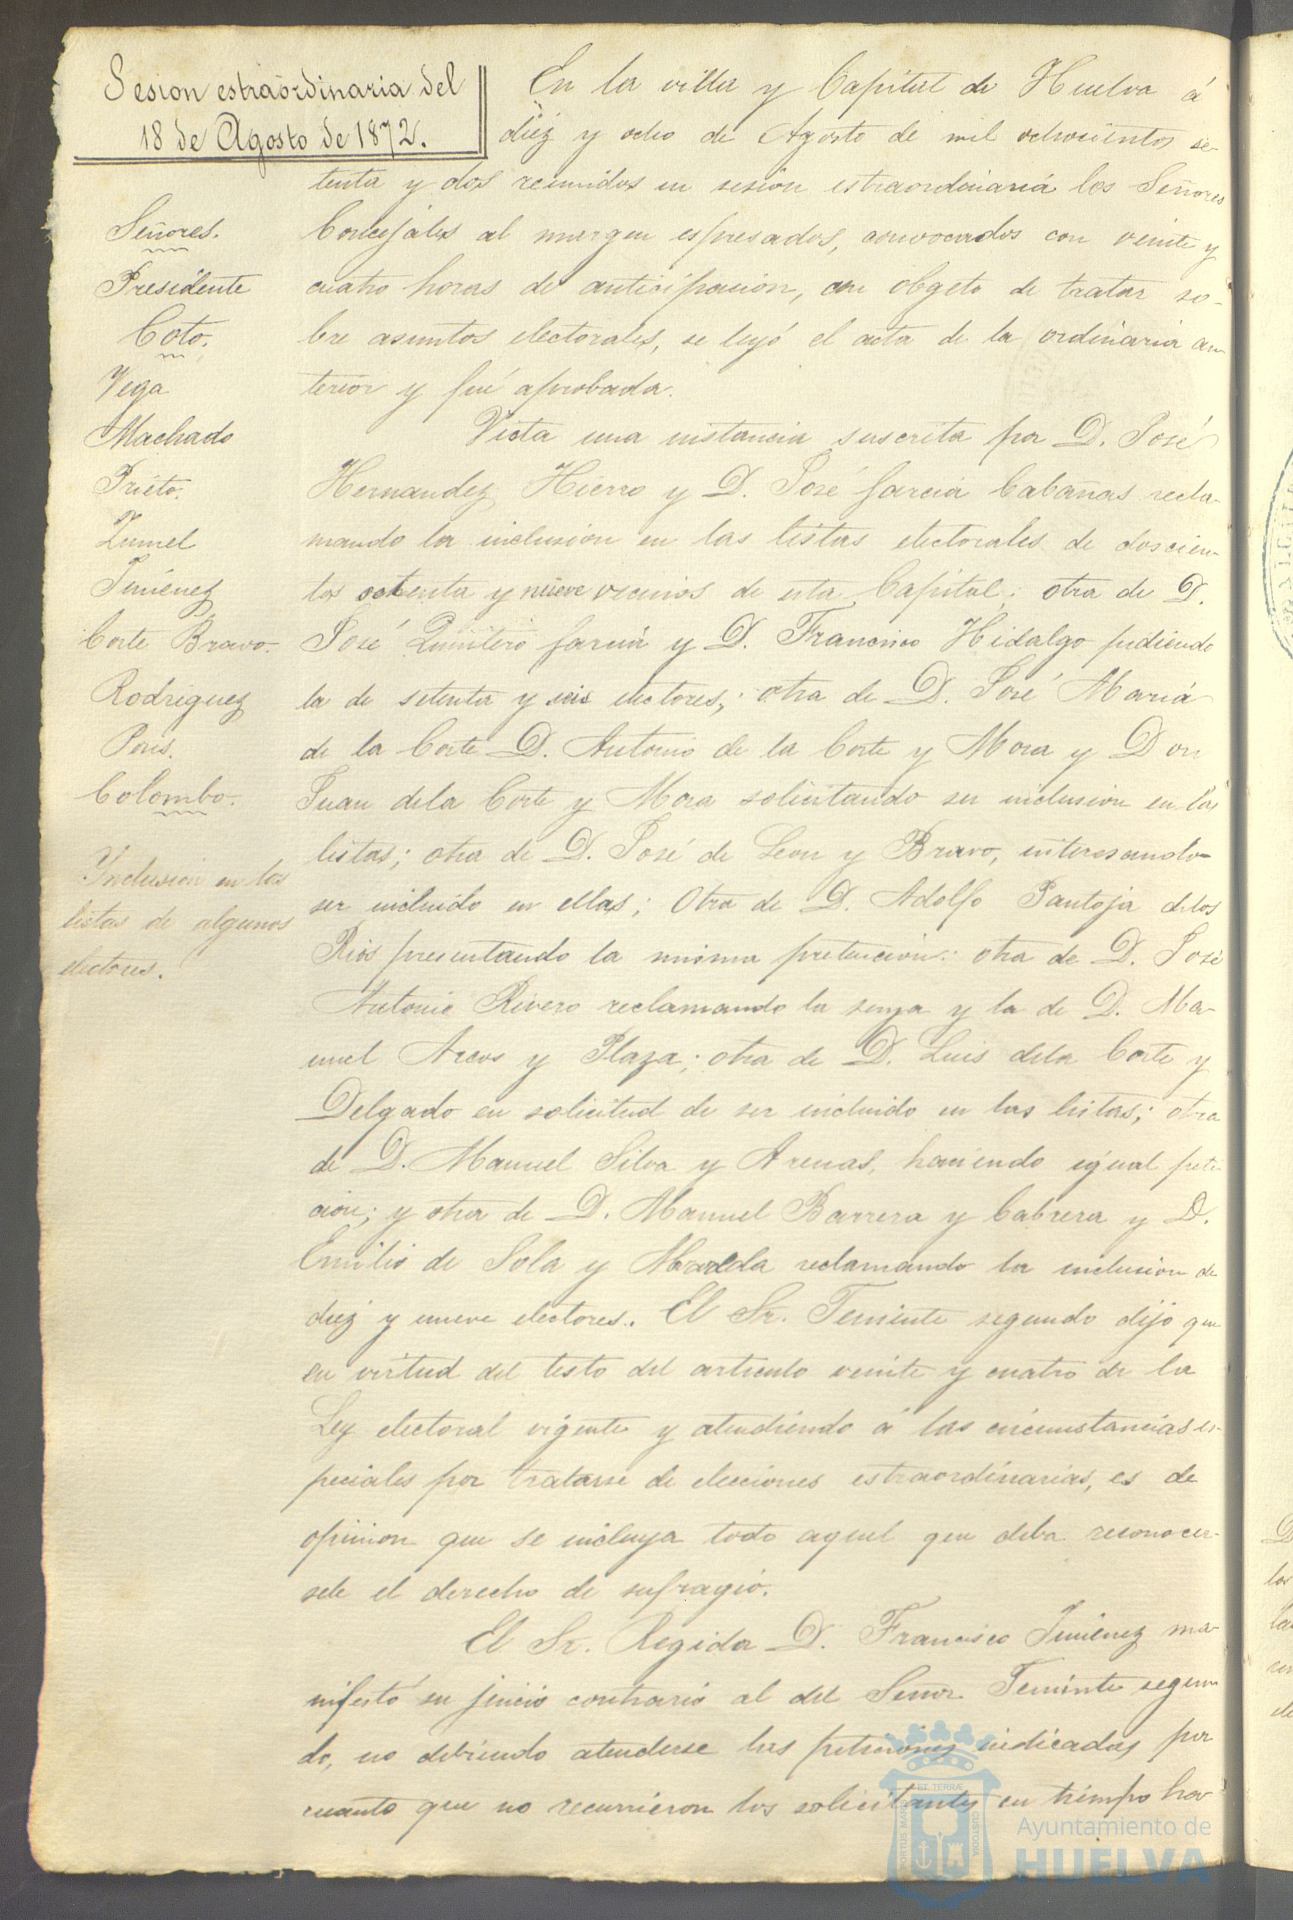 Sesion estraordinaria del
18 de Agosto de 1872.
Señores.
Presidente
Coto.
Vega
Machado
Prieto.
Zumel
Jiménez
Corte Bravo.
Rodriguez
Colombo.
Inclusion en las
listas de algunos
electores.
En la villa y Capital de Huelva á
diez y ocho de Agosto de mil ochocientos se-
tenta y dos reunidos en sesion estraordinaria los Señores
Concejales al margen espresados, convocados con veinte y
cuatro horas de anticipacion, con obgeto de tratar so-
bre asuntos electorales, se leyó el acta de la ordinaria an-
terior y fué aprobada.
Vista una instancia suscrita por D. José
Hernandez Hierro y D. José Garcia Cabañas recla-
mando la inclusion en las listas electorales de doscien-
tos y nueve vecinos de esta Capital; otra de D.
José Quintero Garcia y D. Francisco Hidalgo pidiendo
la de setenta y seis electores; otra de D. José Maria
de la Corte D. Antonio de la Corte y Mora y Don
Juan dela Corte y Mora solicitando su inclusion en las
listas; otra de D. José de Leon y Bravo, interesando
ser incluido en ellas; Otra de D. Adolfo Pantoja delos
Rios presentando la misma pretencion: otra de D. José
Antonio Rivero reclamando la suya y la de D. Ma-
nuel Arcos y Plaza; otra de D. Luis dela Corte y
Delgado en solicitud de ser incluido en las listas; otra
de D. Manuel Silva y Arenas, haciendo igual peti-
cion; y otra de D. Manuel Barrera y Cabrera y D.
Emilio de Sola y reclamando la inclusion de
diez y nueve electores. El Sr. Teniente segundo dijo que
en virtud del testo del articulo veinte y cuatro de la
Ley electoral vigente y atendiendo á las circunstancias es-
peciales por tratarse de elecciones estraordinarias, es de
opinion que se incluya todo aquel que deba reconocer-
sele el derecho de sufragio.
El Sr. Regidor D. Francisco Jimenez ma-
nifestó su juicio contrario al del Señor Teniente segun-
do, no debiendo atenderse las peticiones indicadas por
cuanto que no recurrieron los solicitantes en tiempo ha-
PORTUS MARIS ET TERRÆ CUSTODIA
Ayuntamiento de
HUELVA